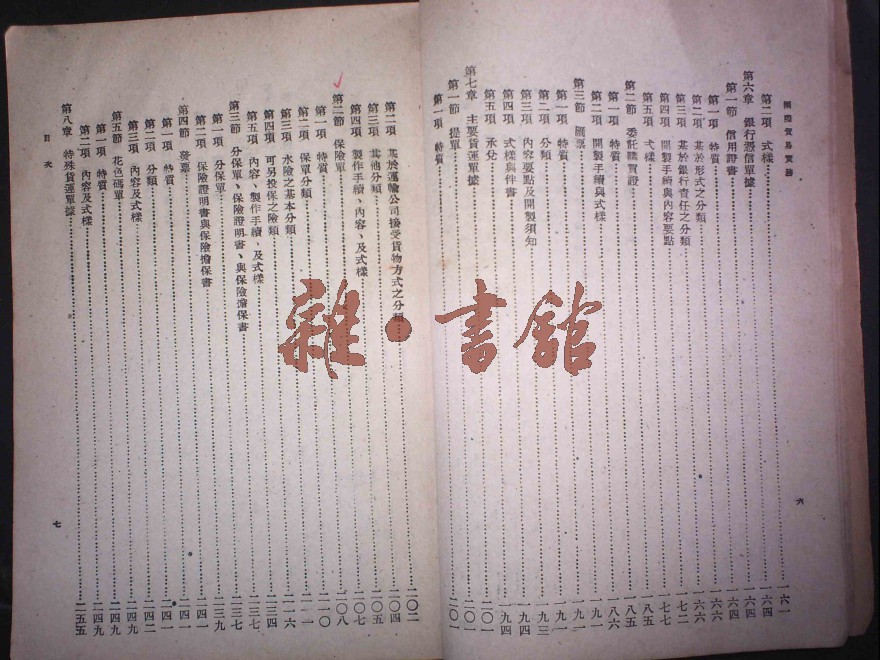 國際貿易實務
第二項 式樣 一六一
第六章 銀行憑信單據 一六四
第一節 信用證書 一六四
第一項 特質 一六六
第二項 基於形式之分類 一六六
第三項 基於銀行責任之分類 一七二
第四項 開製手續與內容要點 一七七
第五項 式樣 一八五
第二節 委託購買證 一八五
第一項 特質 一八六
第二項 開製手續與式樣 一九一
第三節 匯票 一九一
第一項 特質 一九一
第二項 分類 一九三
第三項 內容要點及開製須知 一九四
第四項 式樣與件書 一九四
第五項 承兌 二〇一
第七章 主要貨運單據 二〇一
第一節 提單 二〇一
第一項 特質 二〇一
六
第二項 基於運輸公司接受貨物方式之分類 二〇二
第三項 其他分類 二〇四
第四項 製作手續、內容、及式樣 二〇五
第二節 保險單 二〇七
第一項 特質 二〇八
第二項 保單分類 二一〇
第三項 水險之基本分類 二一一
第四項 可另投保之險類 二一六
第五項 內容、製作手續、及式樣 二三四
第三節 分保單、保險證明書、與保險擔保書 二三七
第一項 分保單 二三七
第二項 保險證明書與保險擔保書 二三九
第四節 發票 二四一
第一項 特質 二四一
第二項 分類 二四一
第三項 內容及式樣 二四二
第五節 花色碼單 二四九
第一項 特質 二四九
第二項 內容及式樣 二四九
第八章 特殊貨運單據 二五五
目次
七
雜·書館